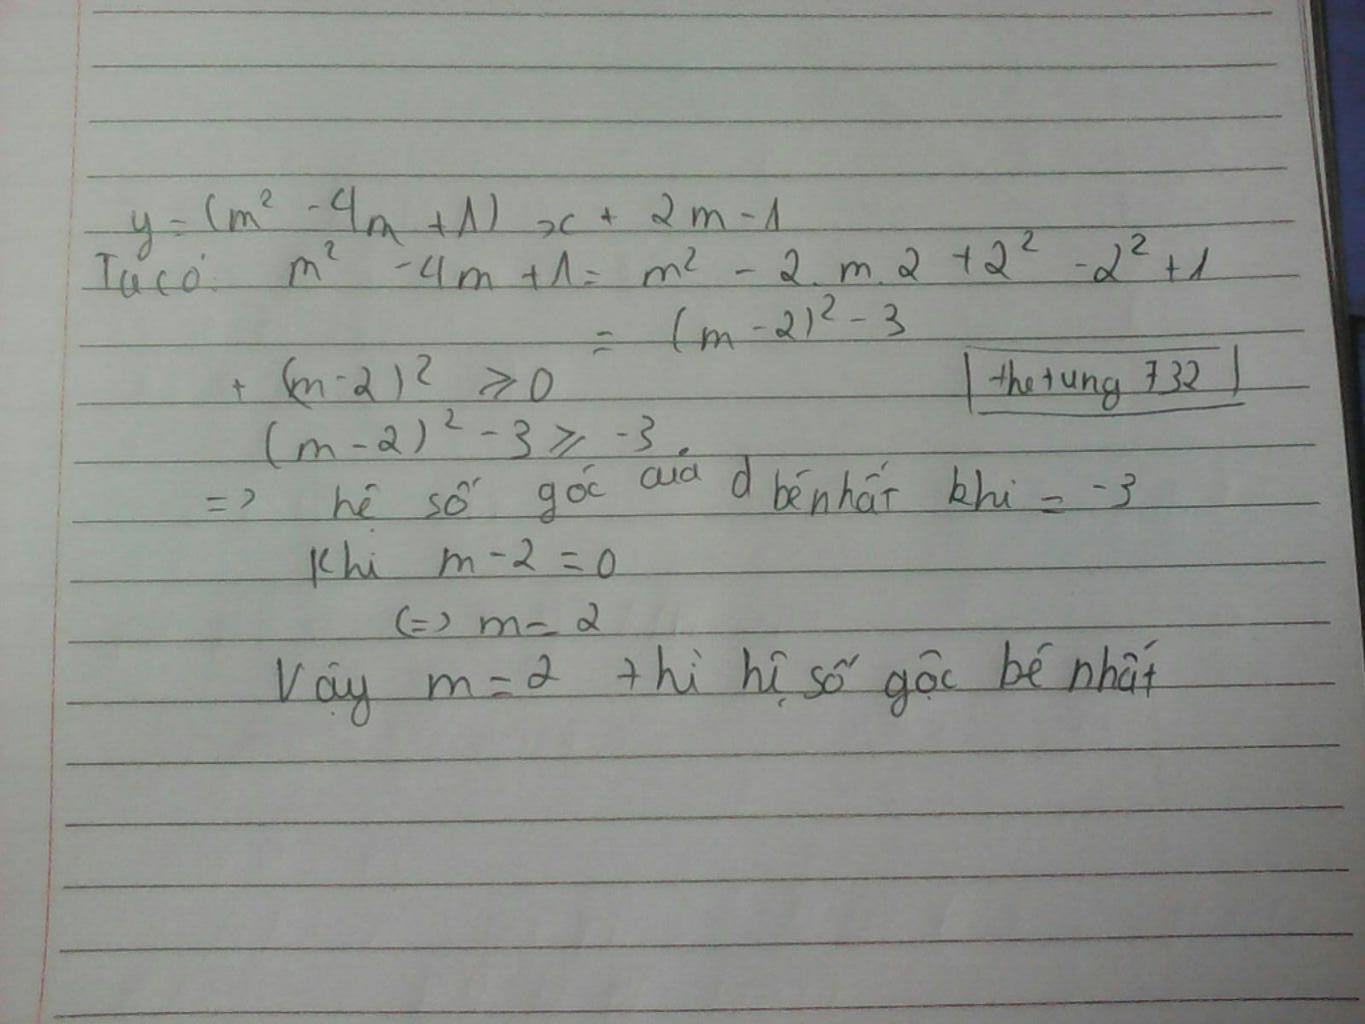 y = (m² - 4m + 1) x + 2m - 1
Ta có: m² - 4m + 1 = m² - 2.m.2 + 2² - 2² + 1
= (m - 2)² - 3
+ (m - 2)² ⩾ 0
thetung 732
(m - 2)² - 3 ⩾ -3.
=> hệ số góc của d bé nhất khi = -3
Khi m - 2 = 0
(=) m = 2
Vậy m = 2 thì hệ số gộc bé nhất